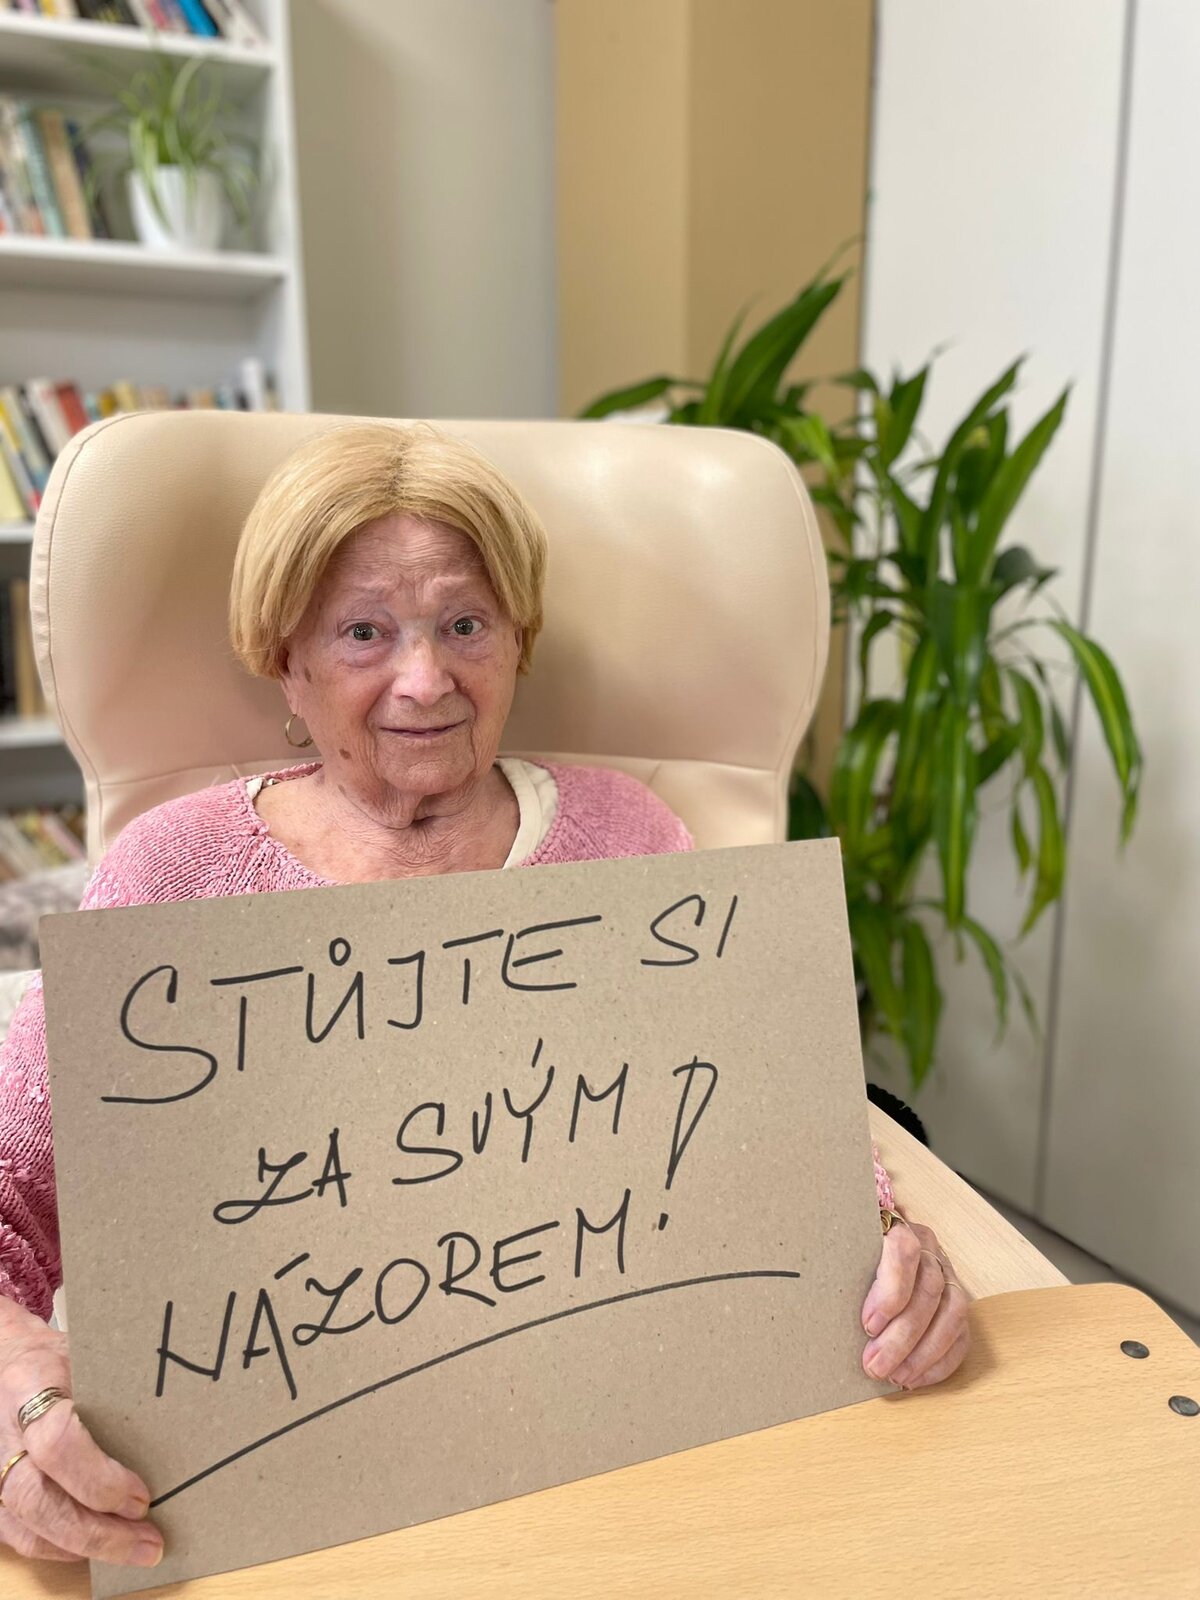 STŮJTE SI
ZA SVÝM
NÁZOREM!